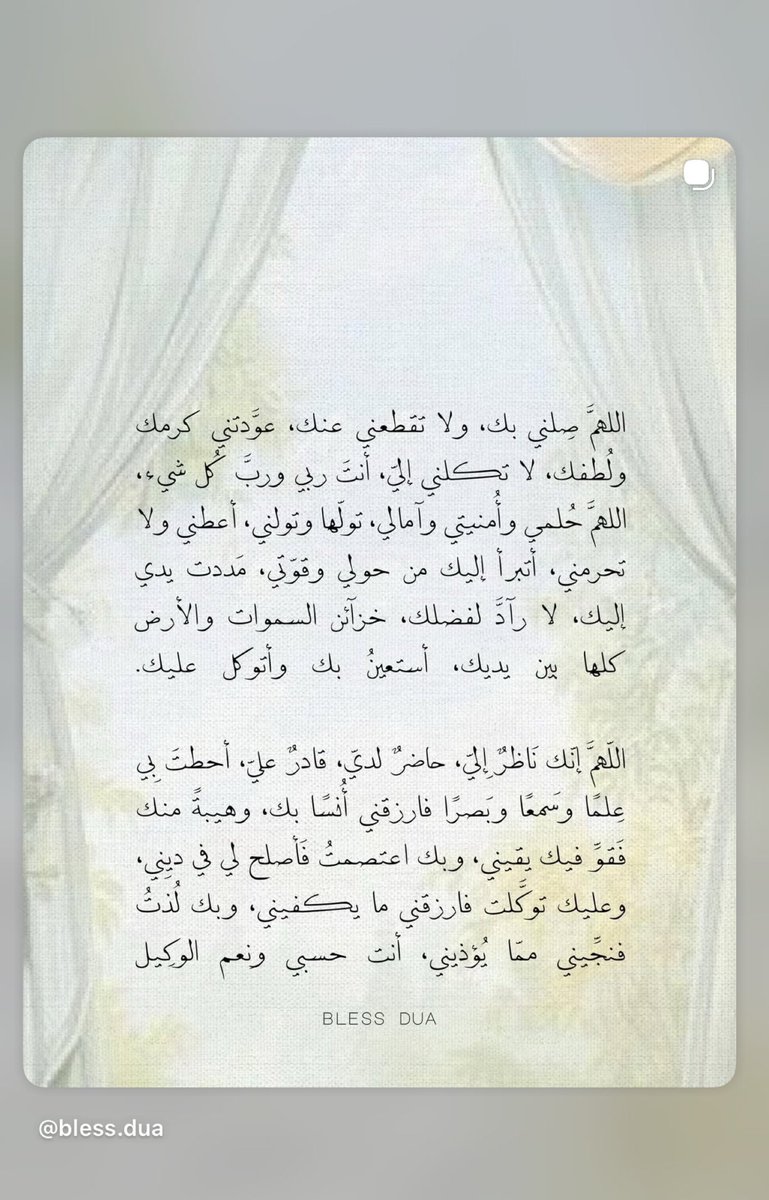 اللهمَّ صِلني بك، ولا تقطعني عنك، عوَّدتني كرمك
ولُطفك، لا تكلني إليّ، أنتَ ربي وربَّ كُل شيء،
اللهمَّ حُلمي وأُمنيتي وآمالي، تولّها وتولني، أعطني ولا
تحرمني، أتبرأ إليك من حولي وقوّتي، مَددت يدي
إليك، لا رآدَّ لفضلك، خزآئن السموات والأرض
كلها بين يديك، أستعينُ بك وأتوكل عليك.
اللَهمَّ إنّك نَاظرٌ إليّ، حاضرٌ لديّ، قادرٌ عليّ، أحطتَ بِي
عِلمًا وسَمعًا وبَصرًا فارزقني أُنسًا بك، وهيبةً منك
فَقوِّ فيك يقيني، وبك اعتصمتُ فَأصلح لي في ديِني،
وعليك توكَّلت فارزقني ما يكفيني، وبك لُذتُ
فنجِّيني ممّا يُؤذيني، أنت حسبي ونِعم الوكِيل
BLESS DUA
@bless.dua